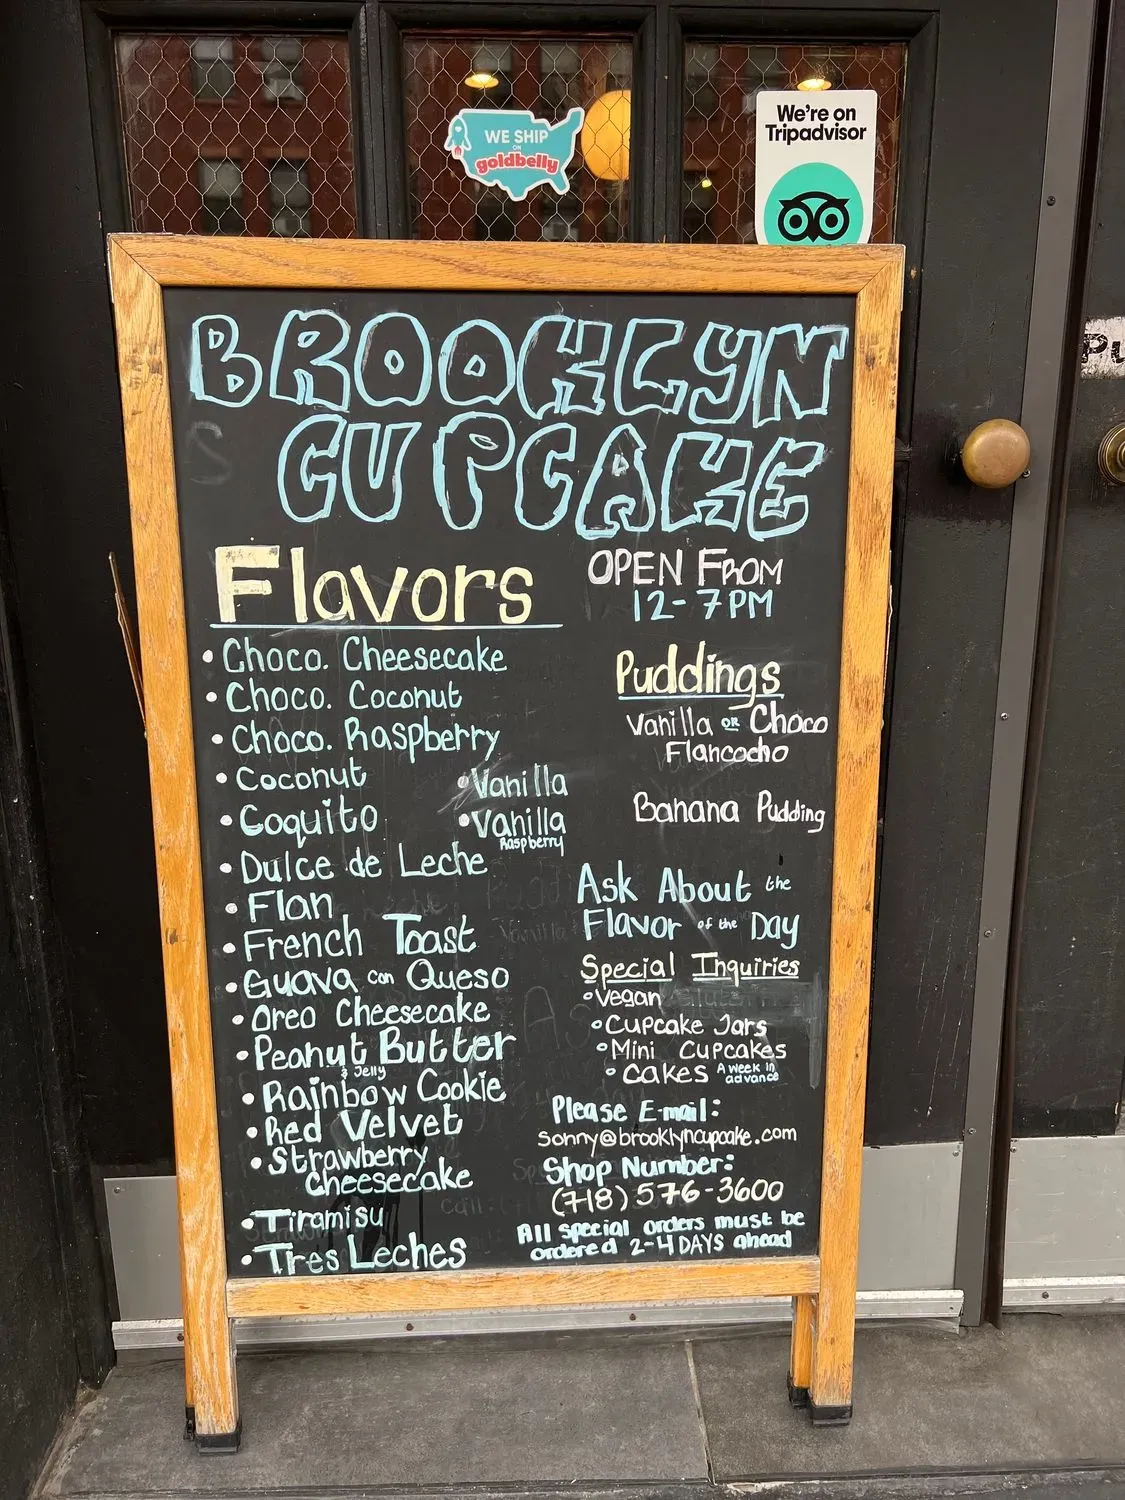 WE SHIP
ON
goldbelly
We're on
Tripadvisor
BROOKLYN
CUPCAKE
Flavors
• Choco. Cheesecake
• Choco. Coconut
• Choco. Raspberry
• Coconut
• Coquito
• Dulce de Leche
• Flan
• French Toast
• Guava con Queso
• Oreo Cheesecake
• Peanut Butter
& Jelly
• Rainbow Cookie
• Red Velvet
• Strawberry
Cheesecake
• Tiramisu
• Tres Leches
• Vanilla
• Vanilla
Raspberry
OPEN FROM
12-7PM
Puddings
Vanilla OR Choco
Flancocho
Banana Pudding
Ask About the
Flavor of the Day
Special Inquiries
• Vegan
• Cupcake Jars
• Mini Cupcakes
• Cakes A week in
advance
Please E-mail:
sonny@brooklyncupcake.com
Shop Number:
(718) 576-3600
All special orders must be
ordered 2-4 DAYS ahead